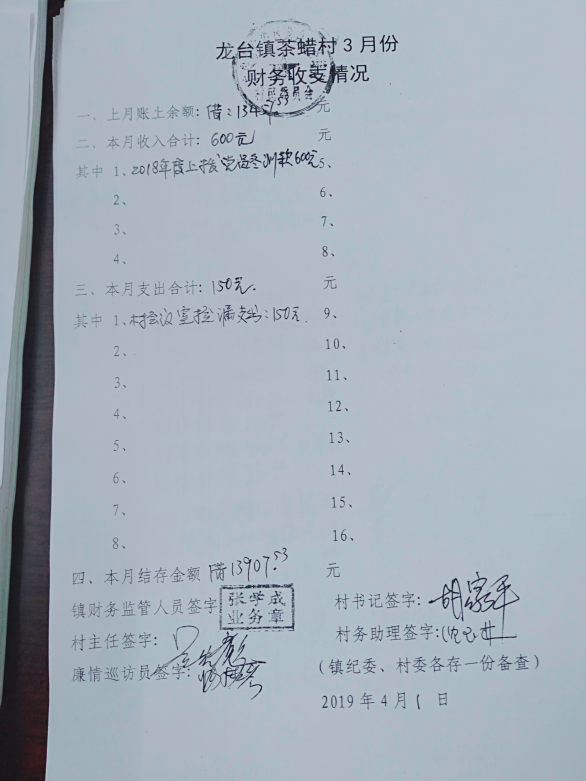 龙台镇茶蜡村3月份
财务收支情况
村民委员会
一、上月账土余额:借:13457.53 元
二、本月收入合计:600元 元
其中 1、2018年度上拨党员冬训款600元 5、
2、 6、
3、 7、
4、 8、
三、本月支出合计:150元. 元
其中 1、村会议室捡漏支出:150元 9、
2、 10、
3、 11、
4、 12、
5、 13、
6、 14、
7、 15、
8、 16、
四、本月结存金额 借13907.53 元
镇财务监管人员签字 张学成
业务章
村书记签字:胡家平
村主任签字: 村务助理签字:
廉情巡访员签字: (镇纪委、村委各存一份备查)
2019年4月1日